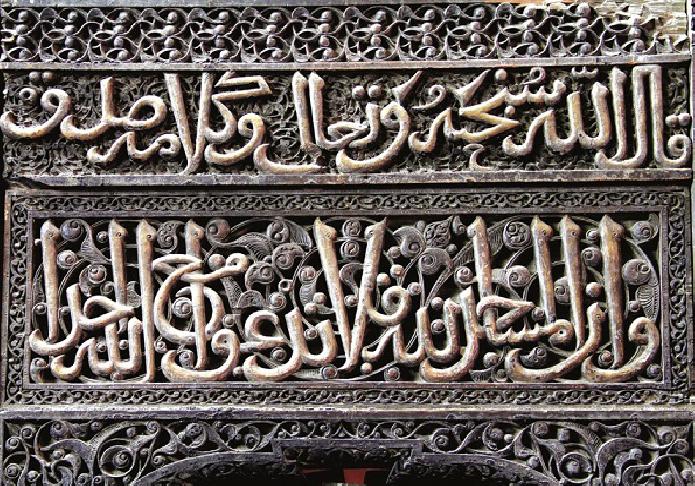 قال الله سبحنه وتعالى وكلامه صدق
وان المساجد لله فلا تدعوا مع الله احدا